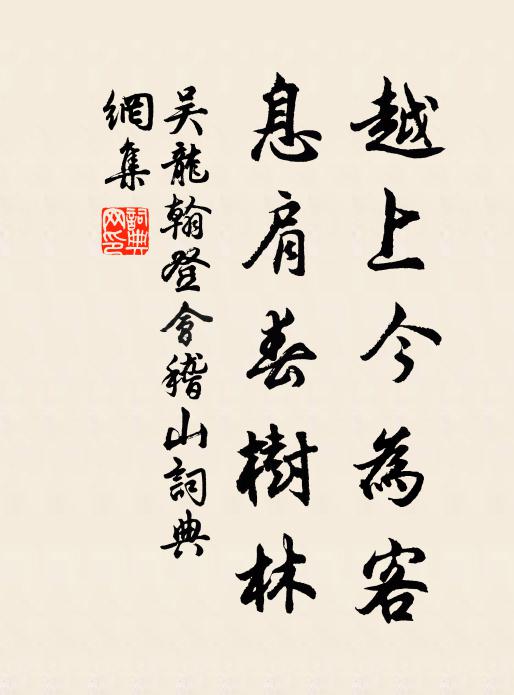 越上今為客
息肩春樹林
吳龍翰登會稽山詞典
網集
詞典網印